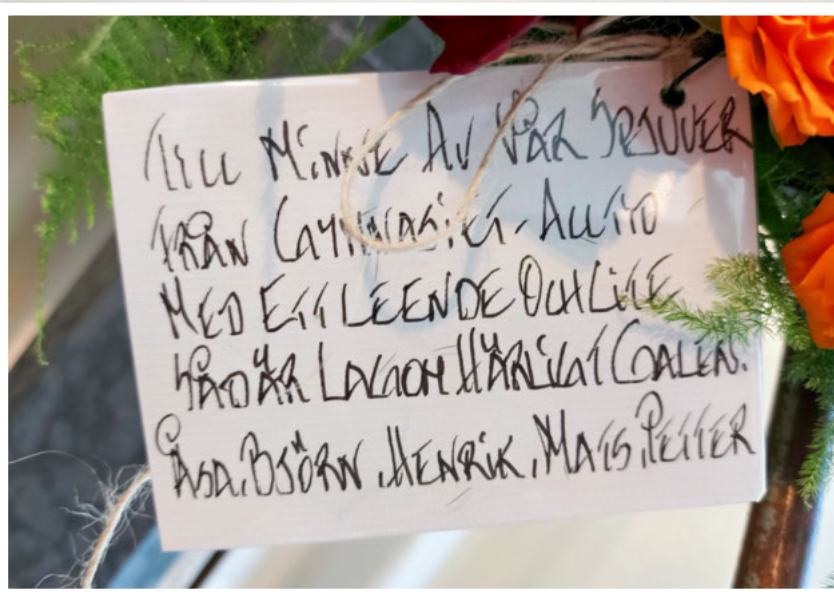 TILL MINNE AV VÅR SPJUVER
FRÅN GYMNASIET - ALLTID
MED ETT LEENDE OCH LITE
SÅDÄR LAGOM HÄRLIGT GALEN.
ÅSA, BJÖRN, HENRIK, MATS, PETTER